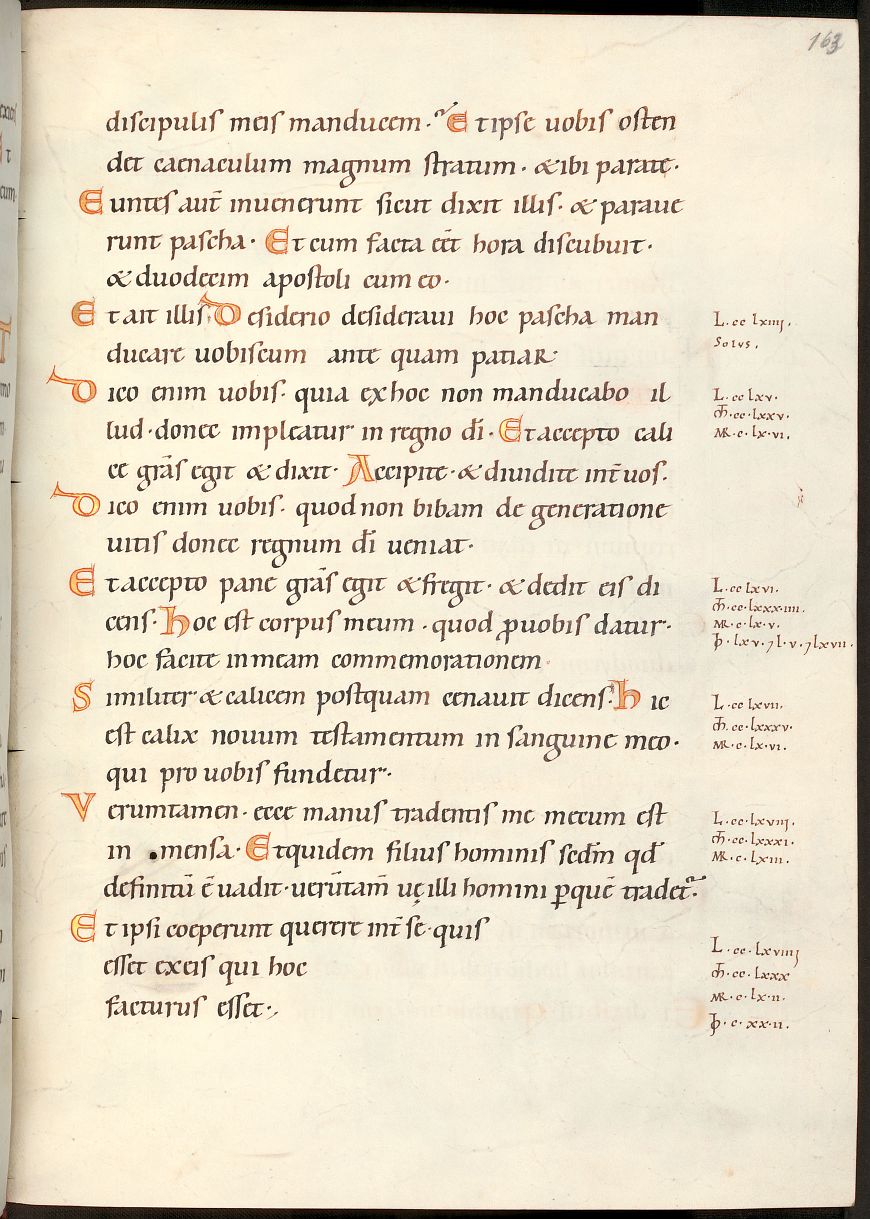 163
discipulis meis manducem · Et ipse uobis osten
det caenaculum magnum stratum · & ibi parate ·
Euntes aut̄ inuenerunt sicut dixit illis · & paraue
runt pascha · Et cum facta eēt hora discubuit ·
& duodecim apostoli cum eo ·
Et ait illis · Desiderio desideraui hoc pascha man
L . cc lxiiij .
ducare uobiscum ante quam patiar ·
Solus .
Dico enim uobis · quia ex hoc non manducabo il
L . cc lxv .
m̄ . cc . lxxv .
lud · donec impleatur in regno dī · Et accepto cali
MR . c . lx . vi .
ce grās egit & dixit · Accipite · & diuidite int̄ uos .
Dico enim uobis · quod non bibam de generatione
uitis donec regnum dī ueniat ·
Et accepto pane grās egit & fregit · & dedit eis di
L . cc lxvi .
m̄ . cc . lxxx . iiii .
cens · Hoc est corpus meum · quod ꝓ uobis datur ·
MR . c . lx . v .
ꝧ . lxv . ⁊ l . v . ⁊ lxvii .
hoc facite in meam commemorationem ·
Similiter & calicem postquam cenauit dicens · Hic
L . cc lxvii .
m̄ . cc . lxxxv .
est calix nouum testamentum in sanguine meo ·
MR . c . lx . vi .
qui pro uobis fundetur ·
Verumtamen · ecce manus tradentis me mecum est
L . cc . lxviij .
m̄ . cc . lxxxi .
in mensa · Et quidem filius hominis secdm̄ qđ
MR . c . lxiii .
definitū ē uadit · uerūtam̄ uę illi homini ꝑ quē tradet᷑ .
Et ipsi coeperunt querere int̄ se · quis
L . cc . lxviiij
esset ex eis qui hoc
m̄ . cc . lxxx
facturus esset ·
MR . c . lx . ii .
ꝧ . c . xx . ii .